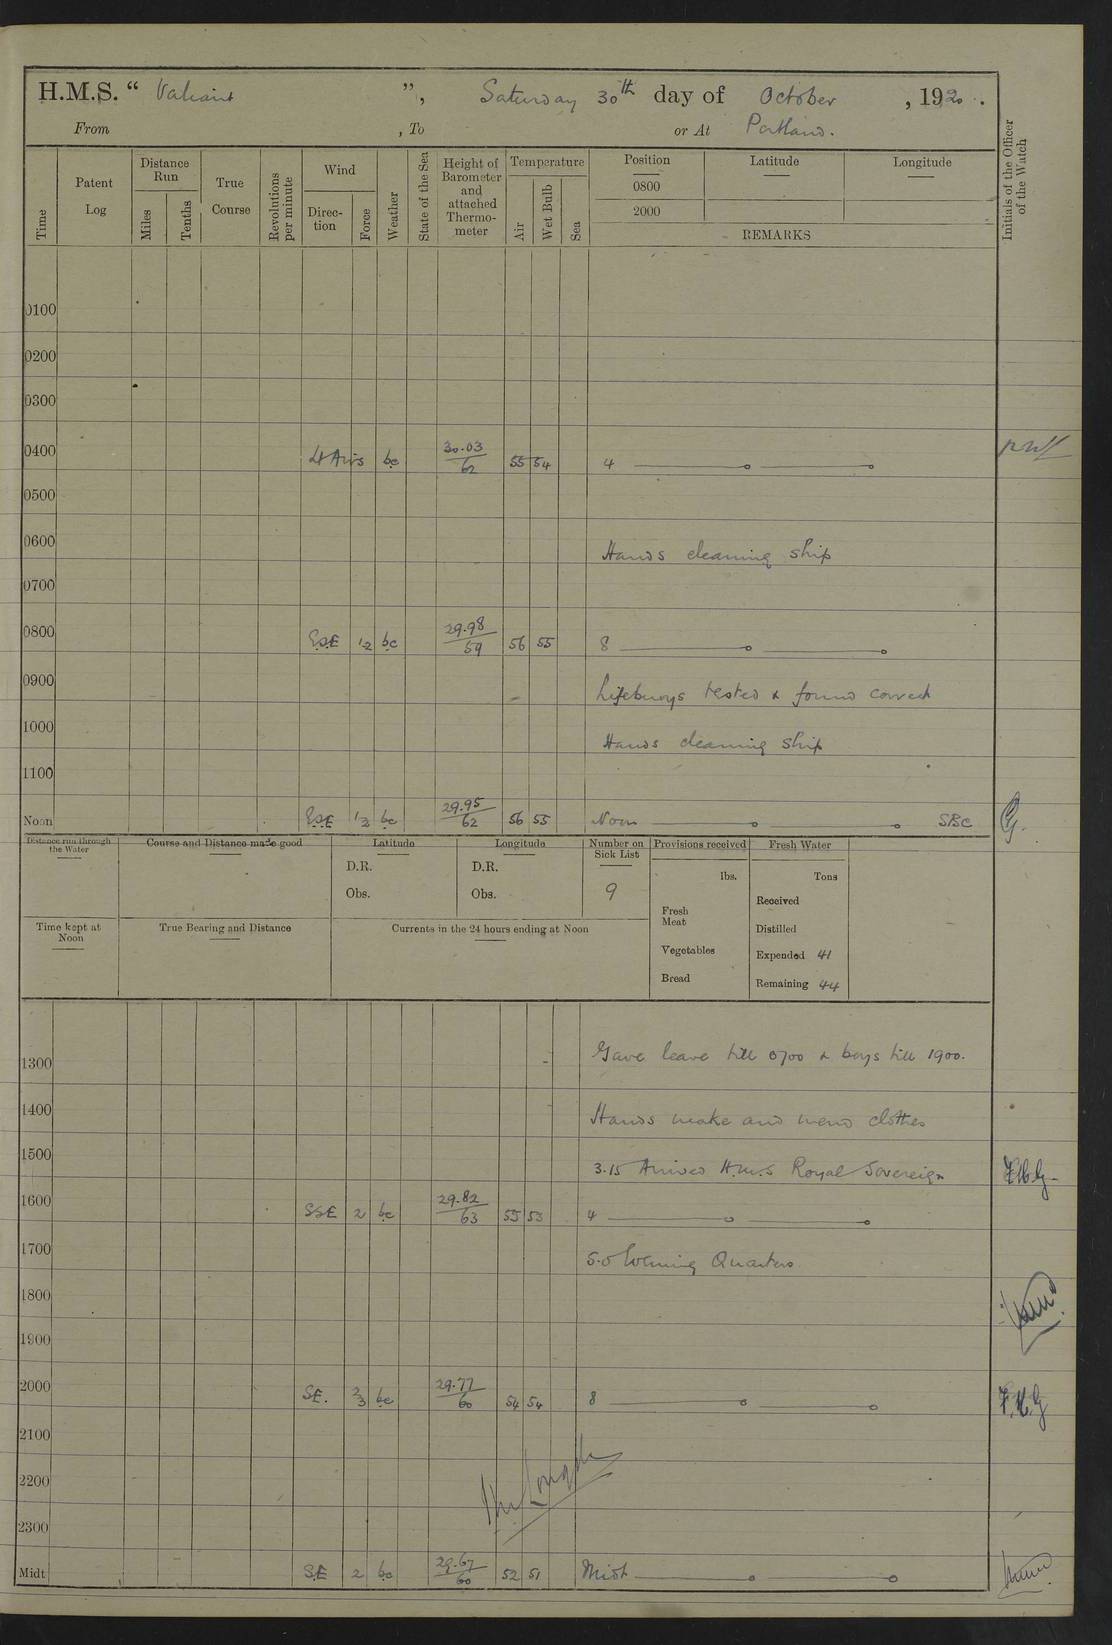 H.M.S. “ Valiant ”, Saturday 30th day of October , 1920 .
From , To or At Portland.
Time Patent Log Distance Run Miles Tenths True Course Revolutions per minute Wind Direc-tion Force Weather State of the Sea Height of Barometer and attached Thermo-meter Temperature Air Wet Bulb Sea Position Latitude Longitude Initials of the Officer of the Watch
0800
2000
REMARKS
0100
0200
0300
0400 Lt Airs bc 30.03/62 55 54 4
0500
0600 Hands cleaning ship
0700
0800 ESE 1-2 bc 29.98/59 56 55 8
0900 Lifebuoys tested & found correct
1000 Hands cleaning ship
1100
Noon ESE bc 29.95/62 56 55 Noon SBC
Distance run through the Water Course and Distance made good Latitude Longitude Number on Sick List Provisions received Fresh Water
D.R. D.R. lbs. Tons
Obs. Obs. 9 Received
Fresh Meat
Time kept at Noon True Bearing and Distance Currents in the 24 hours ending at Noon Distilled
Vegetables Expended 41
Bread Remaining 44
1300 Gave leave till 0700 & boys till 1900.
1400 Hands make and mend clothes
1500 3.15 Arrived H.M.S Royal Sovereign
1600 SSE 2 bc 29.82/63 55 53 4
1700 5.0 Evening Quarters
1800
1900
2000 SE. 2/3 bc 29.77/60 54 54 8 F.H.G
2100
2200
2300
Midt SE 2 bc 29.67/60 52 51 Midt